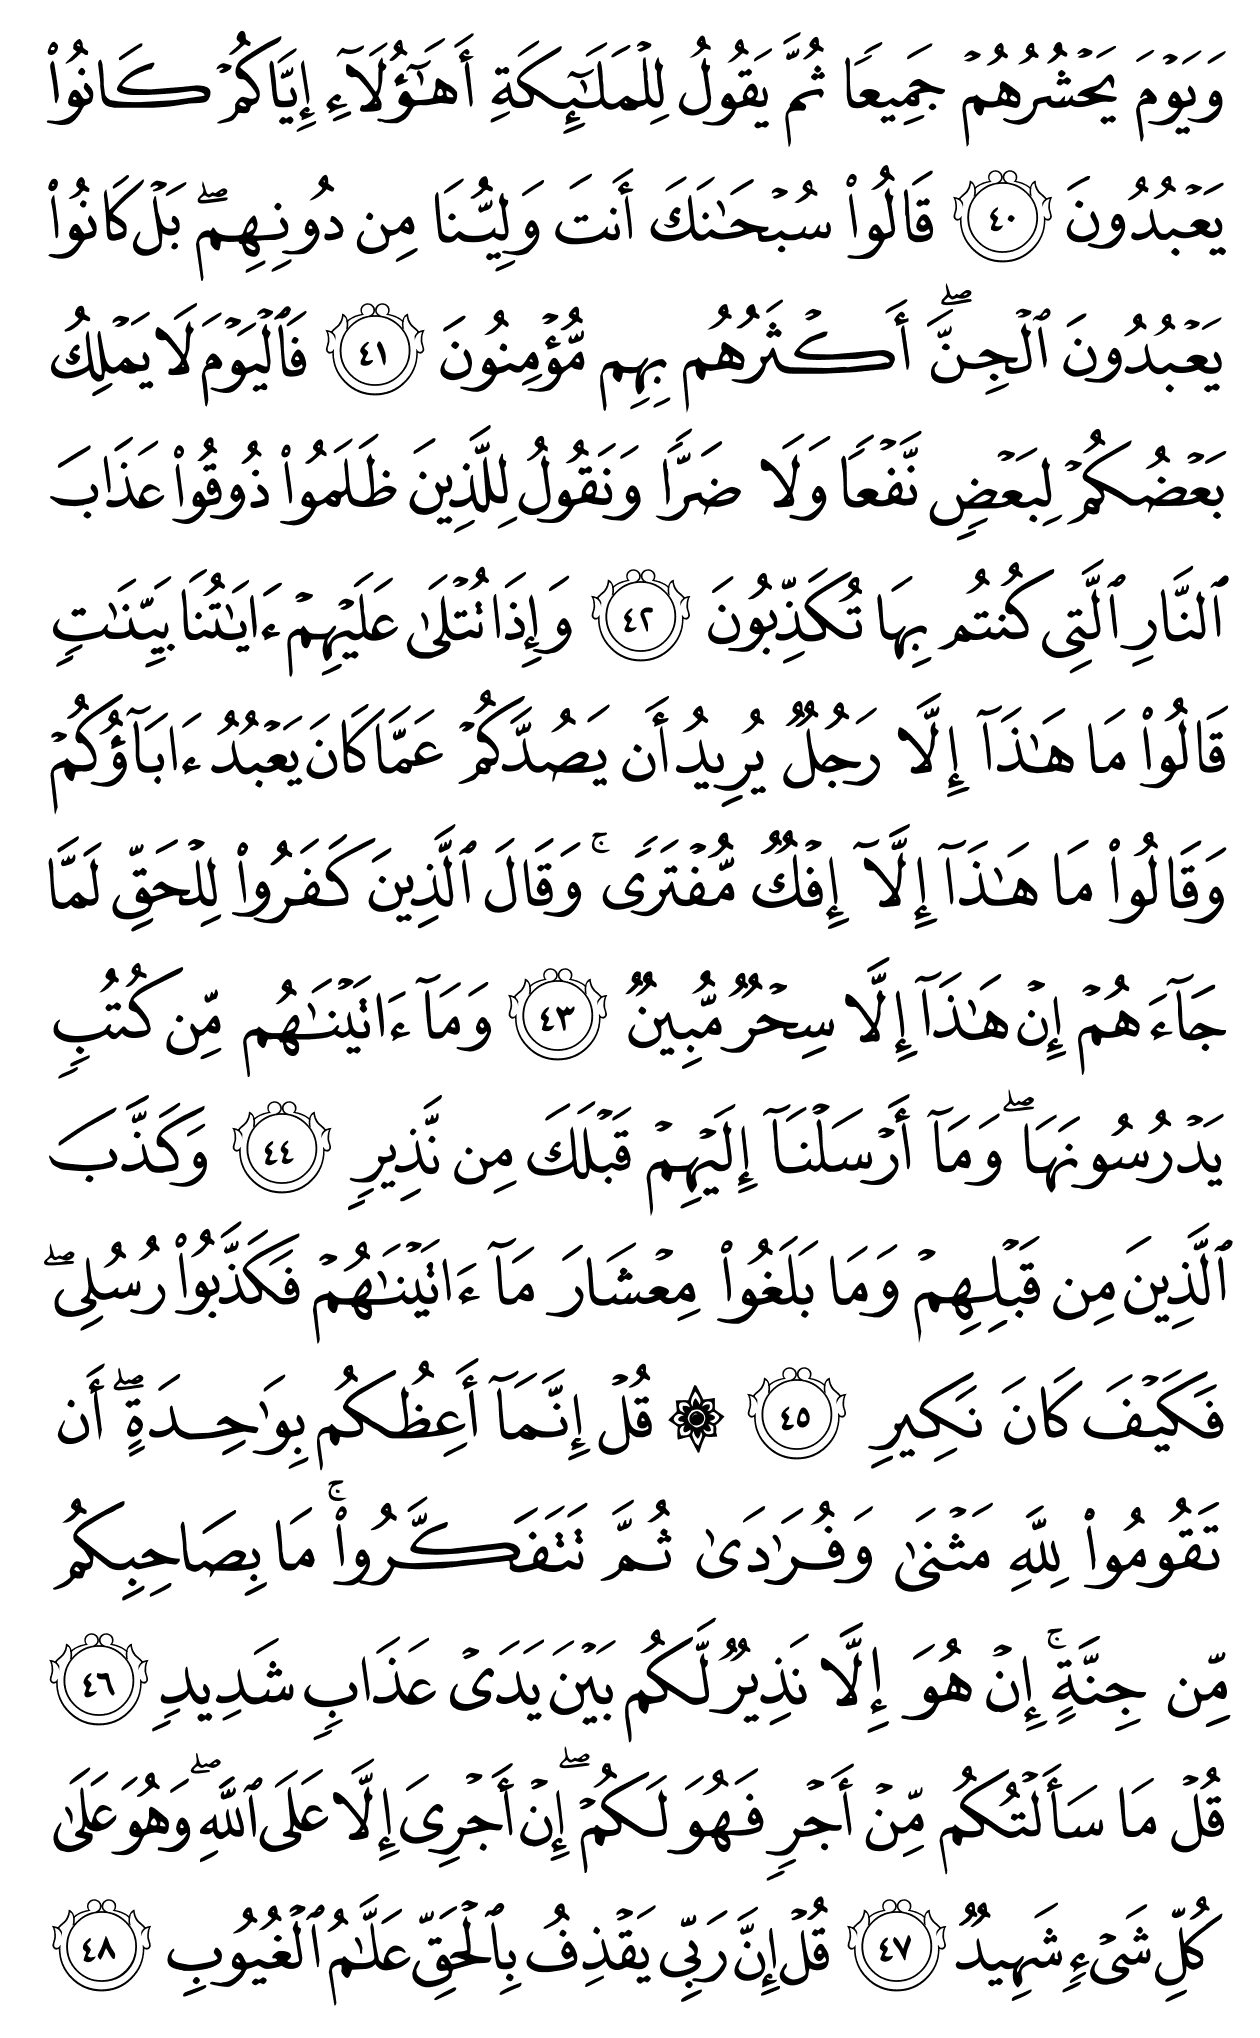 وَيَوْمَ يَحْشُرُهُمْ جَمِيعًا ثُمَّ يَقُولُ لِلْمَلَـٰٓئِكَةِ أَهَـٰٓؤُلَآءِ إِيَّاكُمْ كَانُوا۟
يَعْبُدُونَ ٤٠ قَالُوا۟ سُبْحَـٰنَكَ أَنتَ وَلِيُّنَا مِن دُونِهِم ۖ بَلْ كَانُوا۟
يَعْبُدُونَ ٱلْجِنَّ ۖ أَكْثَرُهُم بِهِم مُّؤْمِنُونَ ٤١ فَٱلْيَوْمَ لَا يَمْلِكُ
بَعْضُكُمْ لِبَعْضٍ نَّفْعًا وَلَا ضَرًّا وَنَقُولُ لِلَّذِينَ ظَلَمُوا۟ ذُوقُوا۟ عَذَابَ
ٱلنَّارِ ٱلَّتِى كُنتُم بِهَا تُكَذِّبُونَ ٤٢ وَإِذَا تُتْلَىٰ عَلَيْهِمْ ءَايَـٰتُنَا بَيِّنَـٰتٍ
قَالُوا۟ مَا هَـٰذَآ إِلَّا رَجُلٌ يُرِيدُ أَن يَصُدَّكُمْ عَمَّا كَانَ يَعْبُدُ ءَابَآؤُكُمْ
وَقَالُوا۟ مَا هَـٰذَآ إِلَّآ إِفْكٌ مُّفْتَرًى ۚ وَقَالَ ٱلَّذِينَ كَفَرُوا۟ لِلْحَقِّ لَمَّا
جَآءَهُمْ إِنْ هَـٰذَآ إِلَّا سِحْرٌ مُّبِينٌ ٤٣ وَمَآ ءَاتَيْنَـٰهُم مِّن كُتُبٍ
يَدْرُسُونَهَا ۖ وَمَآ أَرْسَلْنَآ إِلَيْهِمْ قَبْلَكَ مِن نَّذِيرٍ ٤٤ وَكَذَّبَ
ٱلَّذِينَ مِن قَبْلِهِمْ وَمَا بَلَغُوا۟ مِعْشَارَ مَآ ءَاتَيْنَـٰهُمْ فَكَذَّبُوا۟ رُسُلِى ۖ
فَكَيْفَ كَانَ نَكِيرِ ٤٥ ۞ قُلْ إِنَّمَآ أَعِظُكُم بِوَٰحِدَةٍ ۖ أَن
تَقُومُوا۟ لِلَّهِ مَثْنَىٰ وَفُرَٰدَىٰ ثُمَّ تَتَفَكَّرُوا۟ ۚ مَا بِصَاحِبِكُم
مِّن جِنَّةٍ ۚ إِنْ هُوَ إِلَّا نَذِيرٌ لَّكُم بَيْنَ يَدَىْ عَذَابٍ شَدِيدٍ ٤٦
قُلْ مَا سَأَلْتُكُم مِّنْ أَجْرٍ فَهُوَ لَكُمْ ۖ إِنْ أَجْرِىَ إِلَّا عَلَى ٱللَّهِ ۖ وَهُوَ عَلَىٰ
كُلِّ شَىْءٍ شَهِيدٌ ٤٧ قُلْ إِنَّ رَبِّى يَقْذِفُ بِٱلْحَقِّ عَلَّـٰمُ ٱلْغُيُوبِ ٤٨